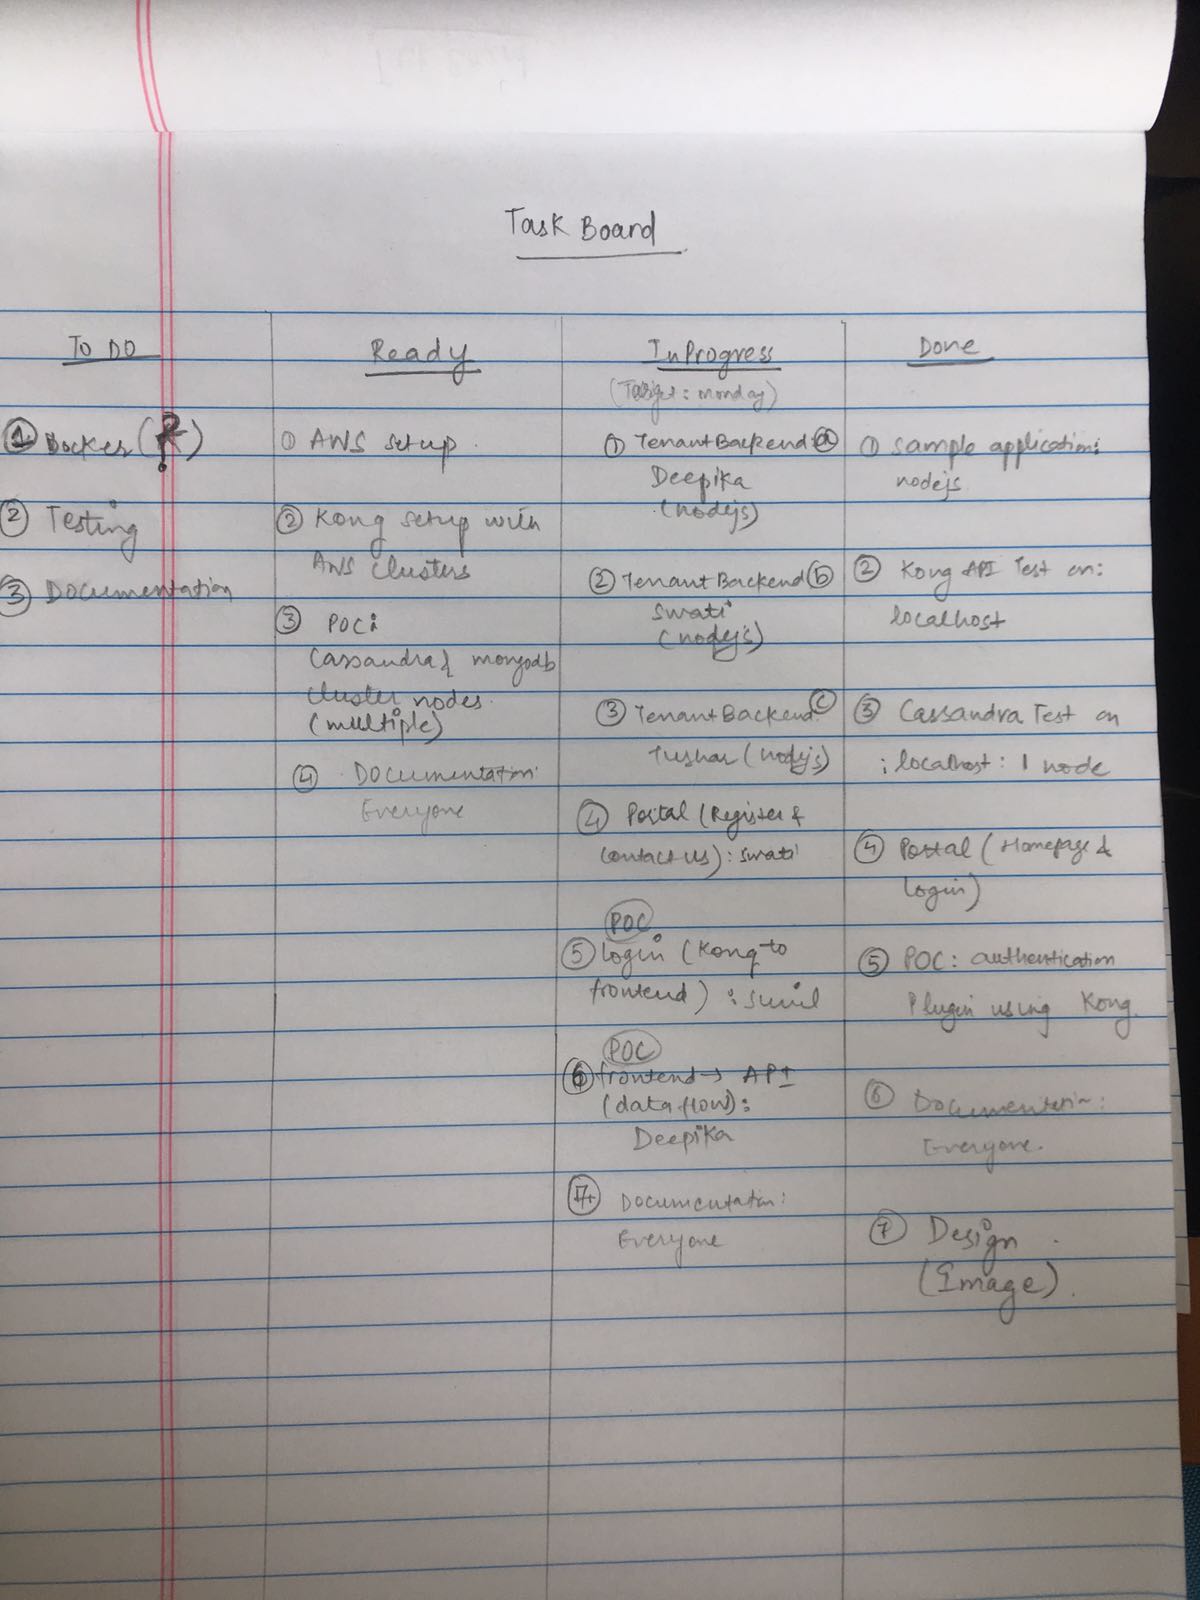 Task Board
To DO
① Docker (?)
② Testing
③ Documentation
Ready
① AWS setup.
② Kong setup with
AWS clusters
③ POC:
Cassandra & mongodb
cluster nodes.
(multiple)
④ Documentation:
Everyone
InProgress
(Target: monday)
① Tenant Backend: ⓐ
Deepika
(nodejs)
② Tenant Backend ⓑ
Swati
(nodejs)
③ Tenant Backend: ⓒ
Tushar (nodejs)
④ Portal (Register &
Contact us) : Swati
POC
⑤ login (Kong to
frontend) : Sunil
POC
⑥ frontend → API
(data flow):
Deepika
⑦ Documentation:
Everyone
Done
① sample application:
nodejs
② Kong API Test on:
localhost
③ Cassandra Test on
: localhost: 1 node
④ Portal (Homepage &
login)
⑤ POC: authentication
Plugin using Kong.
⑥ Documentation:
Everyone.
⑦ Design.
(Image).